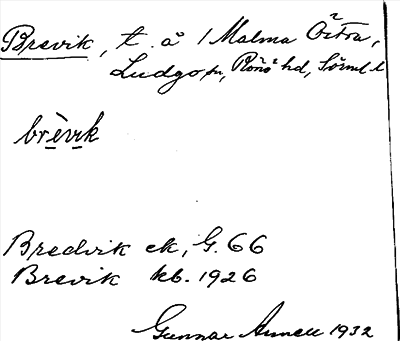 Brevik, t. å 1 Malma Östra,
Ludgo sn, Rönö hd, Sörml. l.
brèvik
Bredvik ek, G. 66
Brevik kb. 1926
Gunnar 1932